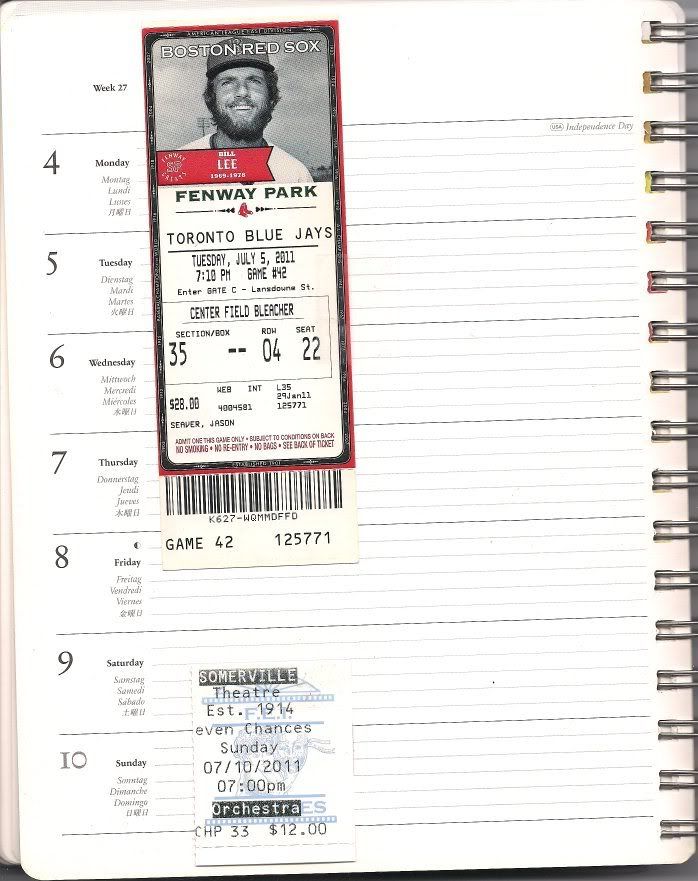 Week 27
USA Independence Day
4 Monday
Montag
Lundi
Lunes
月曜日
5 Tuesday
Dienstag
Mardi
Martes
火曜日
6 Wednesday
Mittwoch
Mercredi
Miércoles
水曜日
7 Thursday
Donnerstag
Jeudi
Jueves
木曜日
8 Friday
Freitag
Vendredi
Viernes
金曜日
9 Saturday
Samstag
Samedi
Sábado
土曜日
10 Sunday
Sonntag
Dimanche
Domingo
日曜日
AMERICAN LEAGUE EAST DIVISION
BOSTON RED SOX
FENWAY
SP
GREATS
BILL
LEE
1969-1978
FENWAY PARK
TORONTO BLUE JAYS
TUESDAY, JULY 5, 2011
7:10 PM GAME #42
Enter GATE C - Lansdowne St.
CENTER FIELD BLEACHER
SECTION/BOX ROW SEAT
35 -- 04 22
WEB INT L35
$28.00 4004581 29Jan11
125771
SEAVER, JASON
ADMIT ONE THIS GAME ONLY • SUBJECT TO CONDITIONS ON BACK
NO SMOKING • NO RE-ENTRY • NO BAGS • SEE BACK OF TICKET
ESTABLISHED 1901
K627-WQMMDFFD
GAME 42 125771
SOMERVILLE
Theatre
Est. 1914
F.E.I.
even Chances
Sunday
07/10/2011
07:00pm
Orchestra
CHP 33 $12.00